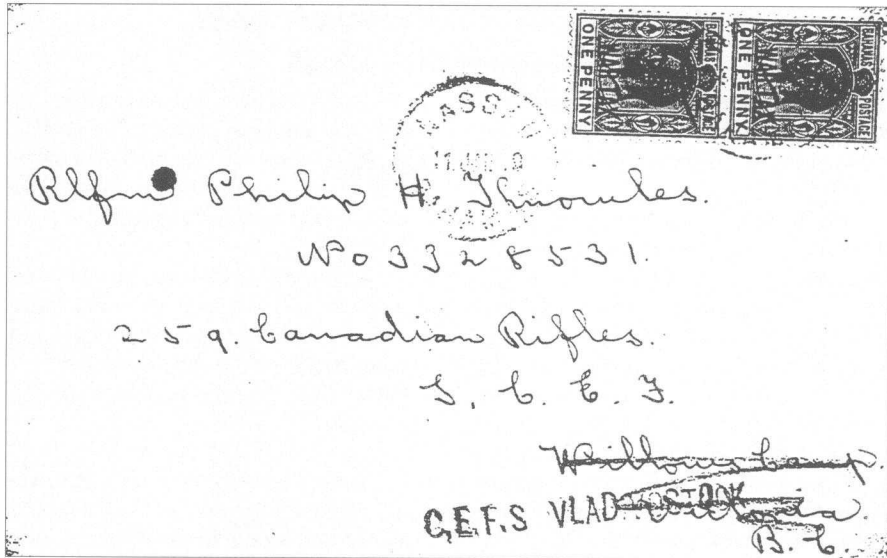 BAHAMAS POSTAGE
ONE PENNY
WAR TAX
BAHAMAS POSTAGE
ONE PENNY
WAR TAX
NASSAU
Rlfmn Philip H. Knowles.
No 3328531.
259. Canadian Rifles.
S. C. E. F.
Willows Camp.
C.E.F.S VLADIVOSTOK
Victoria.
B.C.